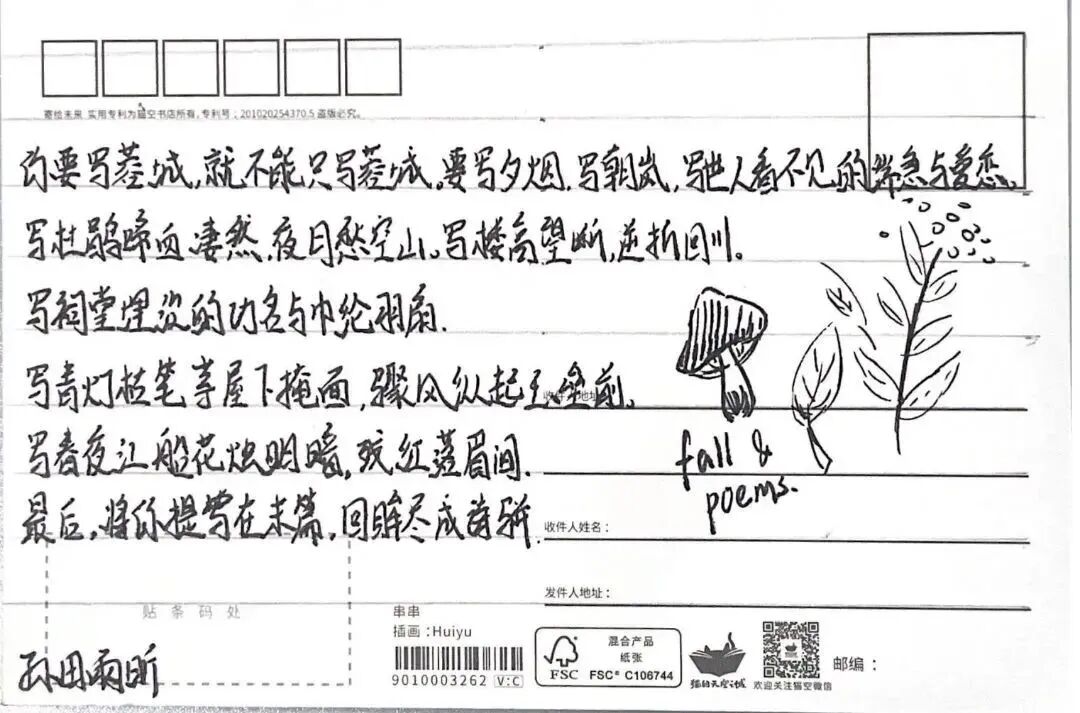 寄给未来 实用专利为猫空书店所有,专利号:201020254370.5 盗版必究。
你要写蓉城,就不能只写蓉城。要写夕烟,写朝岚,写世人看不见的焦急与爱恋。
写杜鹃啼血凄然,夜月愁空山。写楼高望断,逆折回川。
写祠堂埋没的功名与巾纶羽扇.
写青灯枯笔茅屋下掩面,骤风纵起玉垒前。
写春夜江船花烛明暗,残红落眉间.
最后,将你提写在末篇,回眸尽成诗骈.
fall &
poems.
收件人地址:
收件人姓名:
发件人地址:
贴条码处
串串
插画:Huiyu
9010003262 V:C
FSC
混合产品
纸张
FSC® C106744
猫的天空之城
欢迎关注猫空微信
邮编:
孙田雨昕